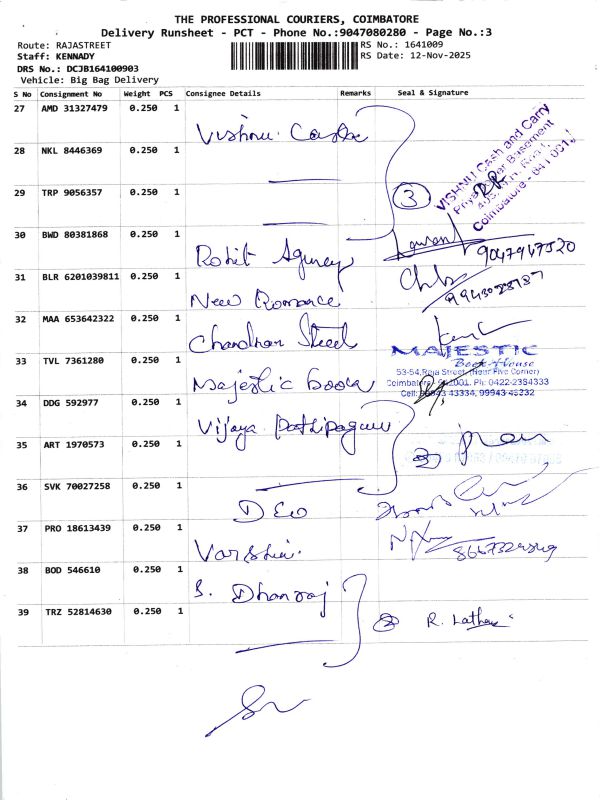 THE PROFESSIONAL COURIERS, COIMBATORE
Delivery Runsheet - PCT - Phone No.:9047080280 - Page No.:3
Route: RAJASTREET
RS No.: 1641009
Staff: KENNADY
RS Date: 12-Nov-2025
DRS No.: DCJB164100903
Vehicle: Big Bag Delivery
S No Consignment No Weight PCS Consignee Details Remarks Seal & Signature
27 AMD 31327479 0.250 1 Vishnu
VISHNU Cash and Carry
Basement
Coimbatore - 641 001
28 NKL 8446369 0.250 1
29 TRP 9056357 0.250 1
3
30 BWD 80381868 0.250 1 Rohit Agency
9047947520
31 BLR 6201039811 0.250 1 New Romance
32 MAA 653642322 0.250 1 Chandran Steel
33 TVL 7361280 0.250 1 Majestic book
MAJESTIC
Book House
53-54, Raja Street, (Near Five Corner)
Coimbatore 641001. Ph: 0422-2384333
Cell: 99943 43334, 99943 48332
34 DDG 592977 0.250 1 Vijaya
35 ART 1970573 0.250 1
36 SVK 70027258 0.250 1
37 PRO 18613439 0.250 1
38 BOD 546610 0.250 1 S. Dhanraj
39 TRZ 52814630 0.250 1
R. Latha